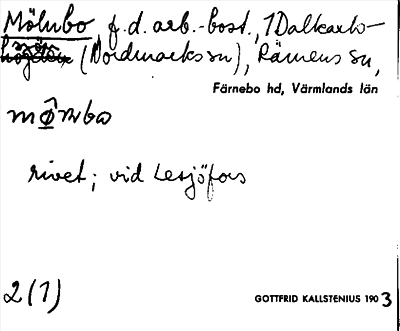 Mölnbo f.d. arb.-bost., 1 Dalkarls-
(Nordmarks sn), Rämens sn,
Färnebo hd, Värmlands län
rivet; vid Lesjöfors
2(1)
GOTTFRID KALLSTENIUS 1903